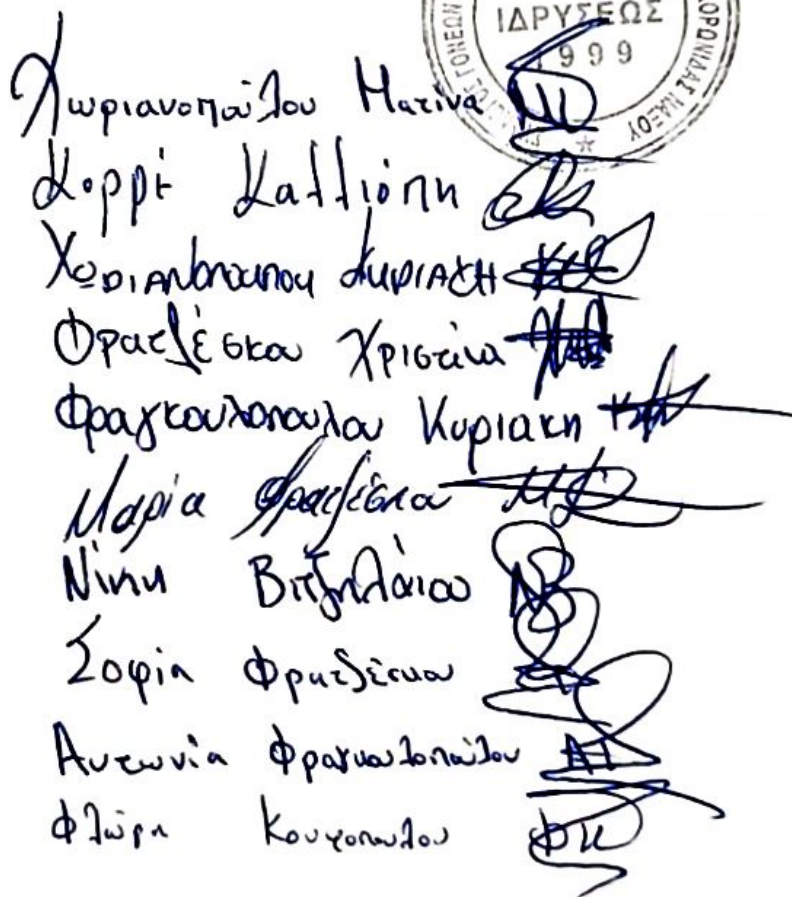 ΙΔΡΥΣΕΩΣ
1999
ΓΟΝΕΩΝ
ΚΟΡΩΝΙΔΑΣ ΝΑΞΟΥ
Χωριανοπούλου Ματίνα
Κορρέ Καλλιόπη
Χωριανοπουλου ΚυΡΙΑΚΗ
Φρατζέσκου Χριστίνα
Φραγκουλοπουλου Κυριακη
Μαρία Φρατζέσκου
Νίκη Βιτζηλαίου
Σοφία Φρατζέσκου
Αντωνία Φραγκουλοπούλου
Φλώρα